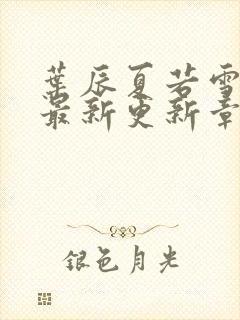 葉辰夏若雪
最新更新章
銀色月光